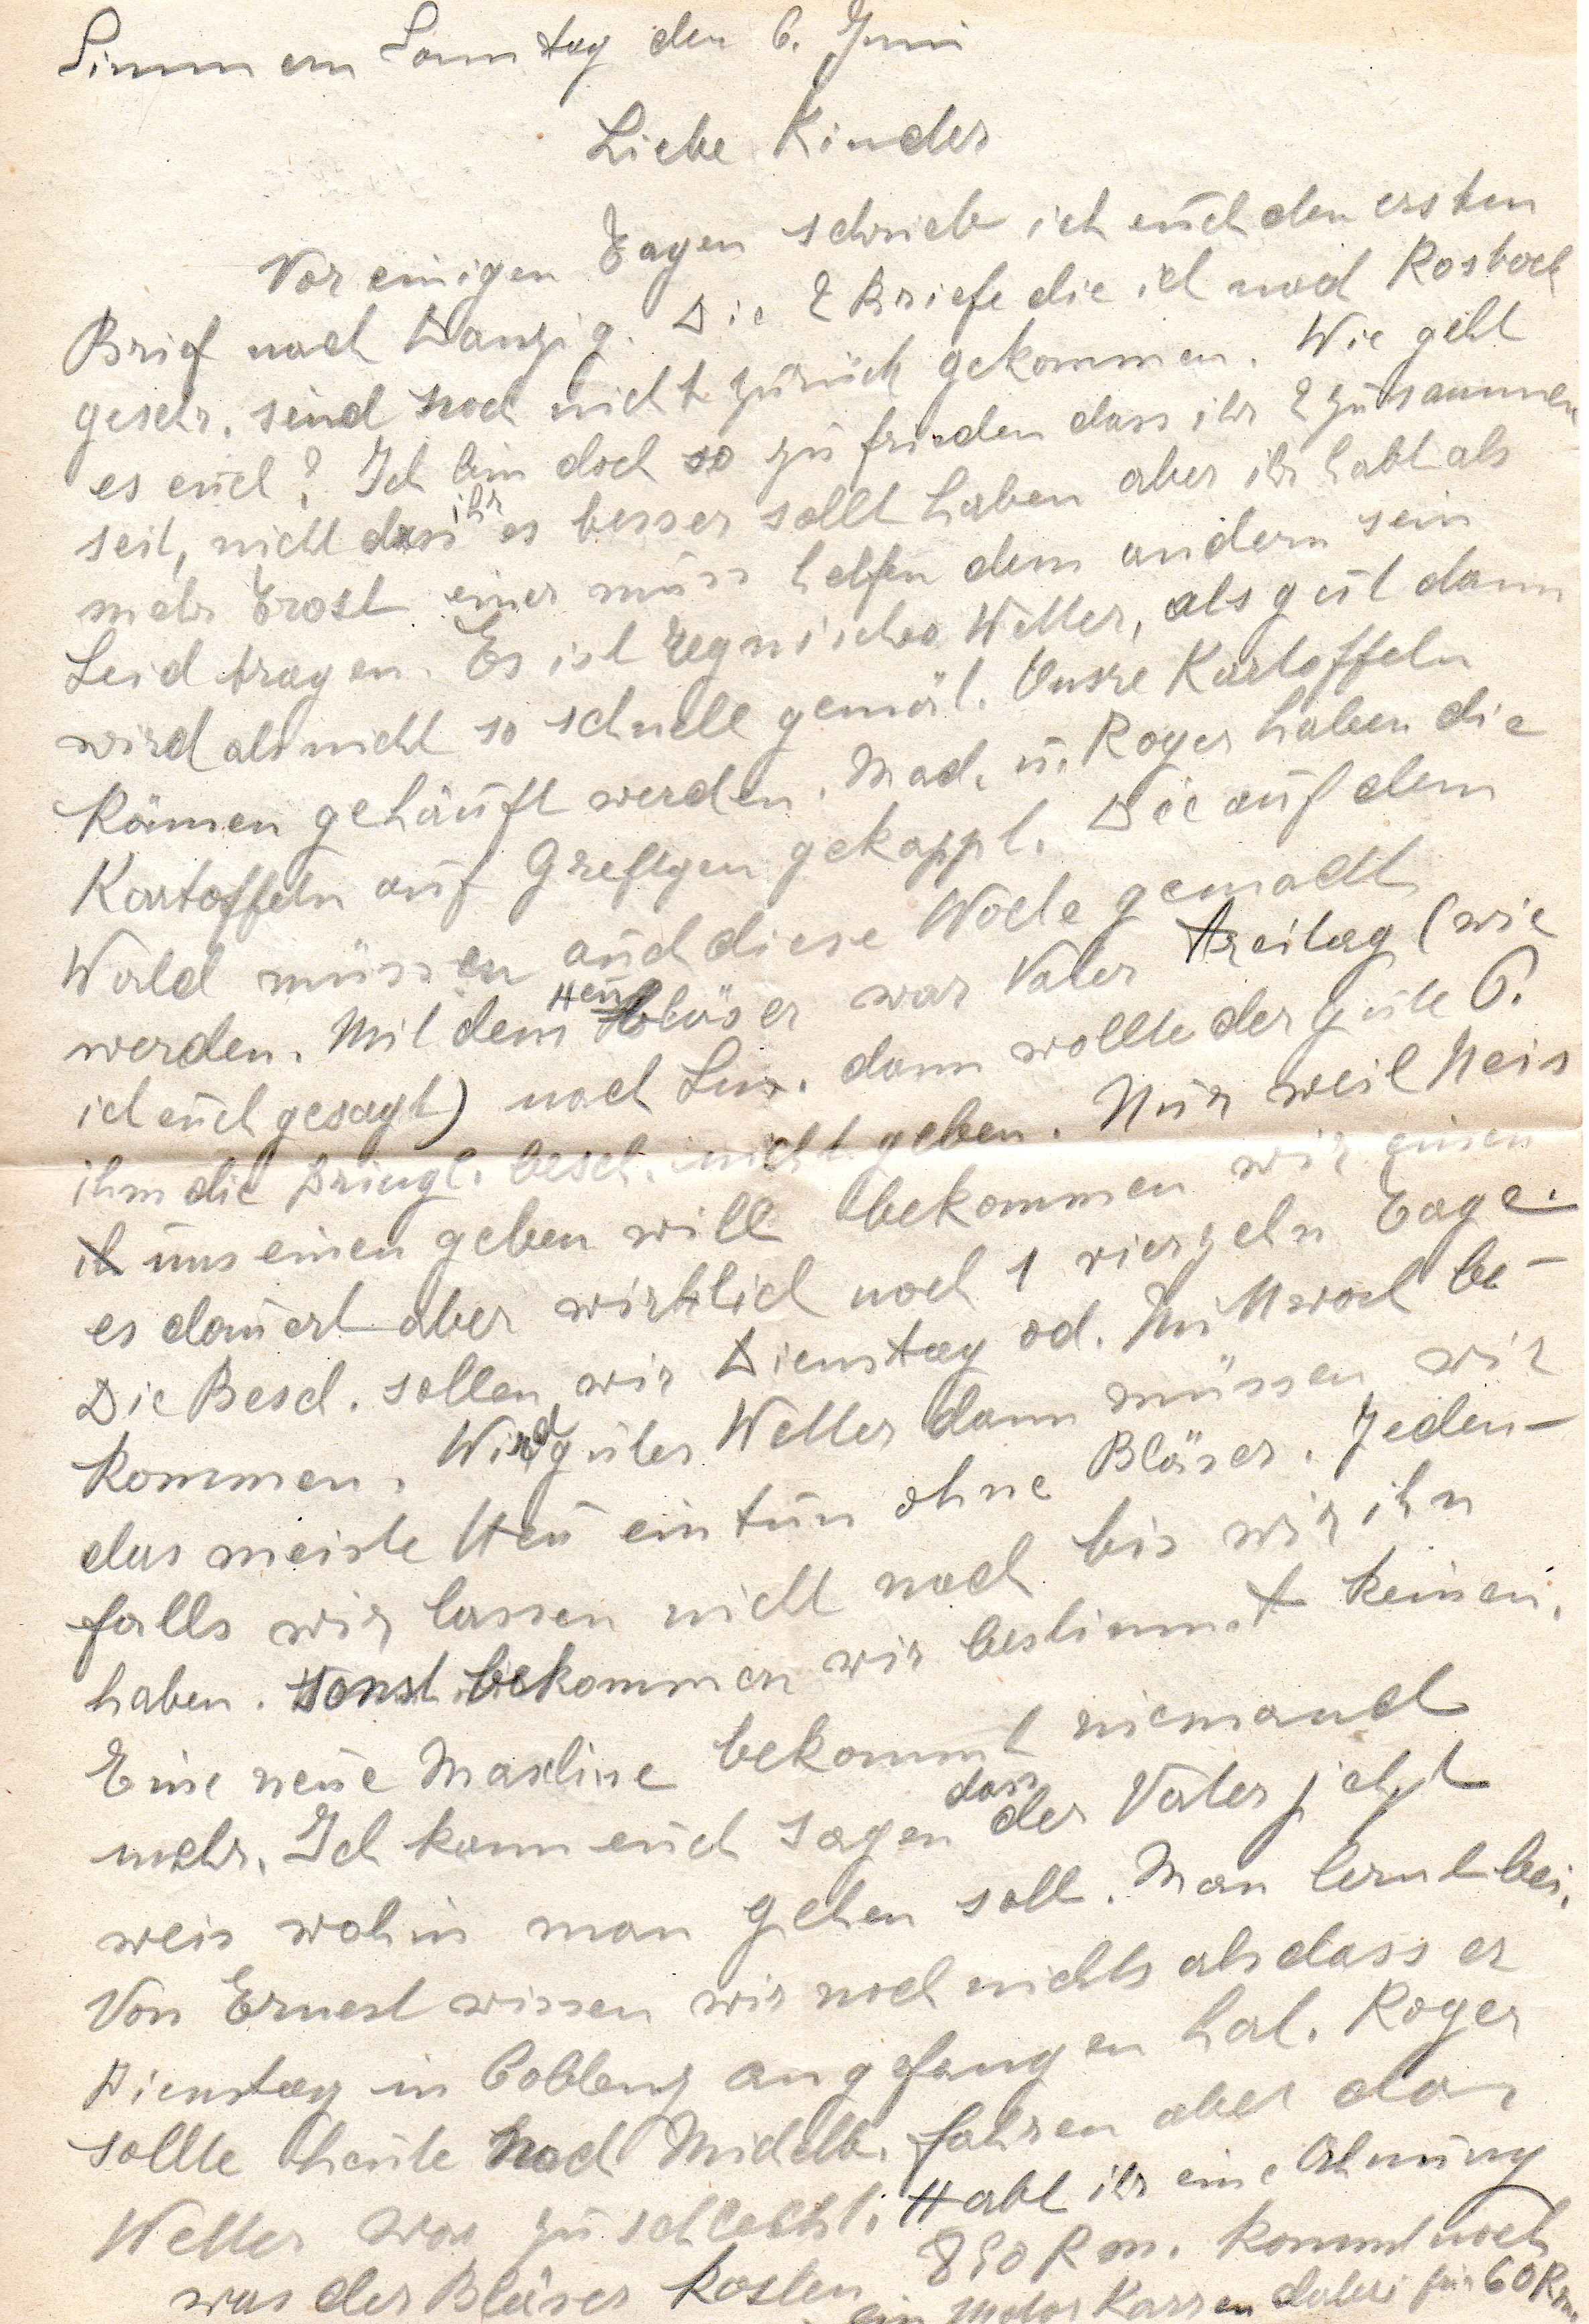 Simmern Sonntag den 6. Juni
Liebe Kinder
Vor einigen Tagen schrieb ich euch den ersten
Brief nach Danzig. Die 2 Briefe die ich nach Rostock
geschr. sind noch nicht zurück gekommen. Wie geht
es euch? Ich bin doch so zu frieden dass ihr 2 zusammen
seit, nicht dass ihr es besser sollt haben aber ihr habt als
mehr Trost einer muss helfen dem andern sein
Leid tragen. Es ist regnisches Wetter, als gut dann
wird als nicht so schnell gemät. Unsre Kartoffeln
kämen gehäuft werden. Mad. u. Roger haben die
Kartoffeln auf Greftgen gekappt. Die auf dem
Wald müssen auch diese Woche gemacht
werden. Mit dem Heubläser war Vater Freitag (wie
ich euch gesagt) nach Lux. dann wollte der gute P.
ihm die Dringl. besch. nicht geben. Nur weil Neis
uns einen geben will bekommen wir einen
es dauert aber wirklich noch 1 vierzehn Tage.
Die Besch. sollen wir Dienstag od. Mittwoch be-
kommen. Wird gutes Wetter dann müssen wir
das meiste Heu ein tun ohne Bläser. Jeden-
falls wir lassen nicht nach bis wir ihn
haben. Sonst bekommen wir bestimmt keinen.
Eine neue Maschine bekommt niemand
mehr. Ich kann euch sagen dass der Vater jetzt
weis wohin man gehen soll. Man lernt bei.
Von Ernest wissen wir noch nichts als dass er
Dienstag in Coblenz angefangen hat. Roger
sollte heute nach Midelb. fahren aber das
Wetter war zu schlecht. Habt ihr eine Ahnung
was der Bläser kosten 890 Rm. kommt noch
ein Motor Karren dabei für 60 Rm